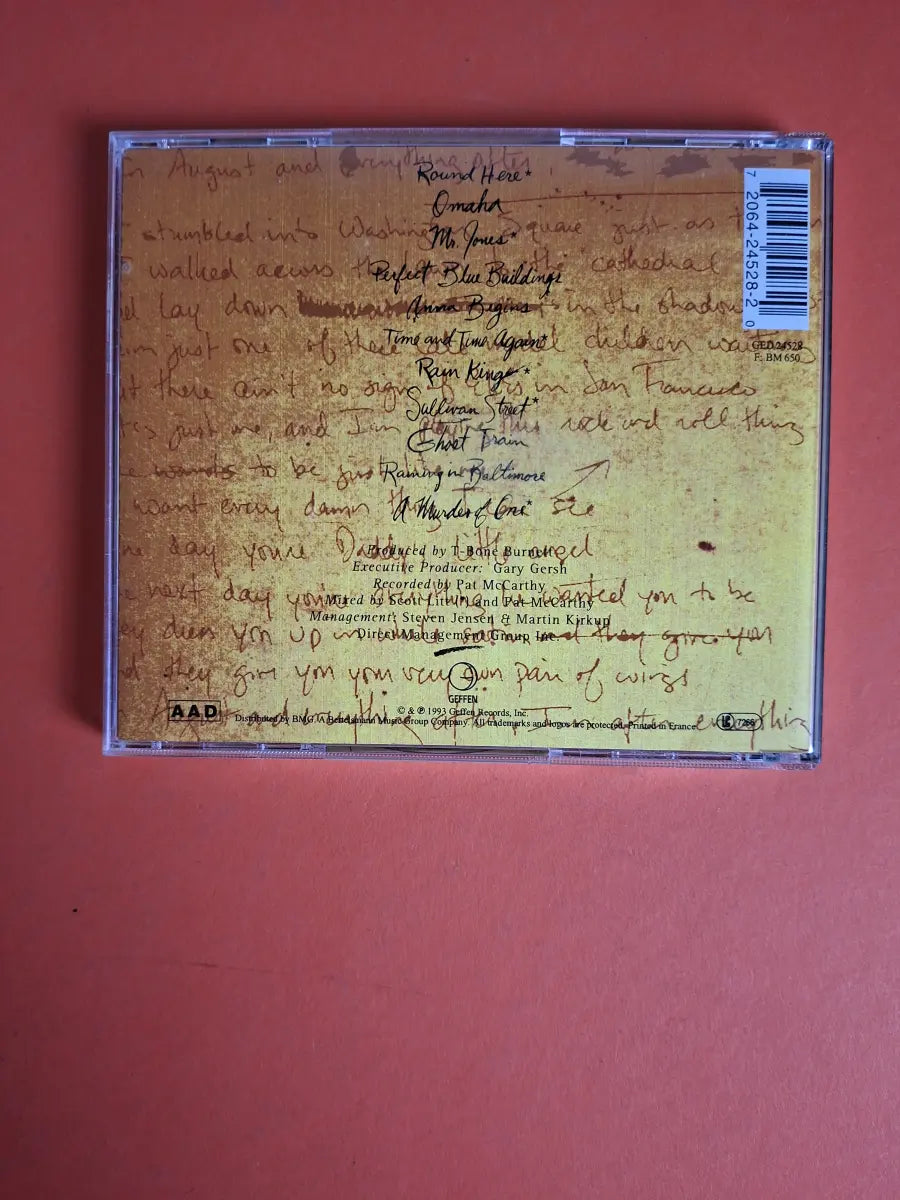 August and Everything after
Round Here*
Omaha
stumbled into Washington Square just as
Mr. Jones*
I walked across the cathedral
Perfect Blue Buildings
lay down in the shadow
Anna Begins
Time and Time Again*
just one of these children
Rain King*
there ain't no sign of in San Francisco
Sullivan Street*
just me, and I'm this rock and roll thing
Ghost Train
to be just
Raining in Baltimore
want every damn thing I see
A Murder of One*
day you're Daddy's little angel
Produced by T-Bone Burnett
Executive Producer: Gary Gersh
Recorded by Pat McCarthy
next day you're everything wanted you to be
Mixed by Scott Litt and Pat McCarthy
Management: Steven Jensen & Martin Kirkup
dress you up in and they give you
Direct Management Group Inc.
they give you your very own pair of wings
GEFFEN
© & ℗ 1993 Geffen Records, Inc.
AAD
Distributed by BMG /A Bertelsmann Music Group Company. All trademarks and logos are protected. Printed in France.
after everything
LC 7266
7 2064-24528-2 0
GED 24528
F: BM 650